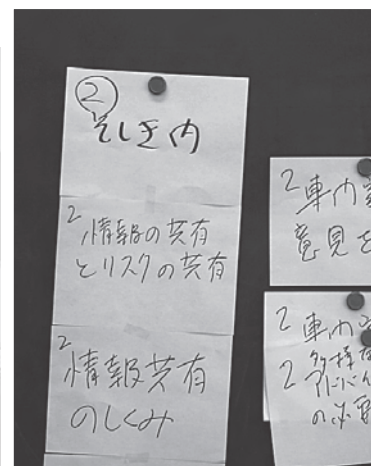 ②
そしき内
2 情報の共有
とリスクの共有
2 情報共有
のしくみ
2 車内
意見を
2 車内
2 多様な
の必要